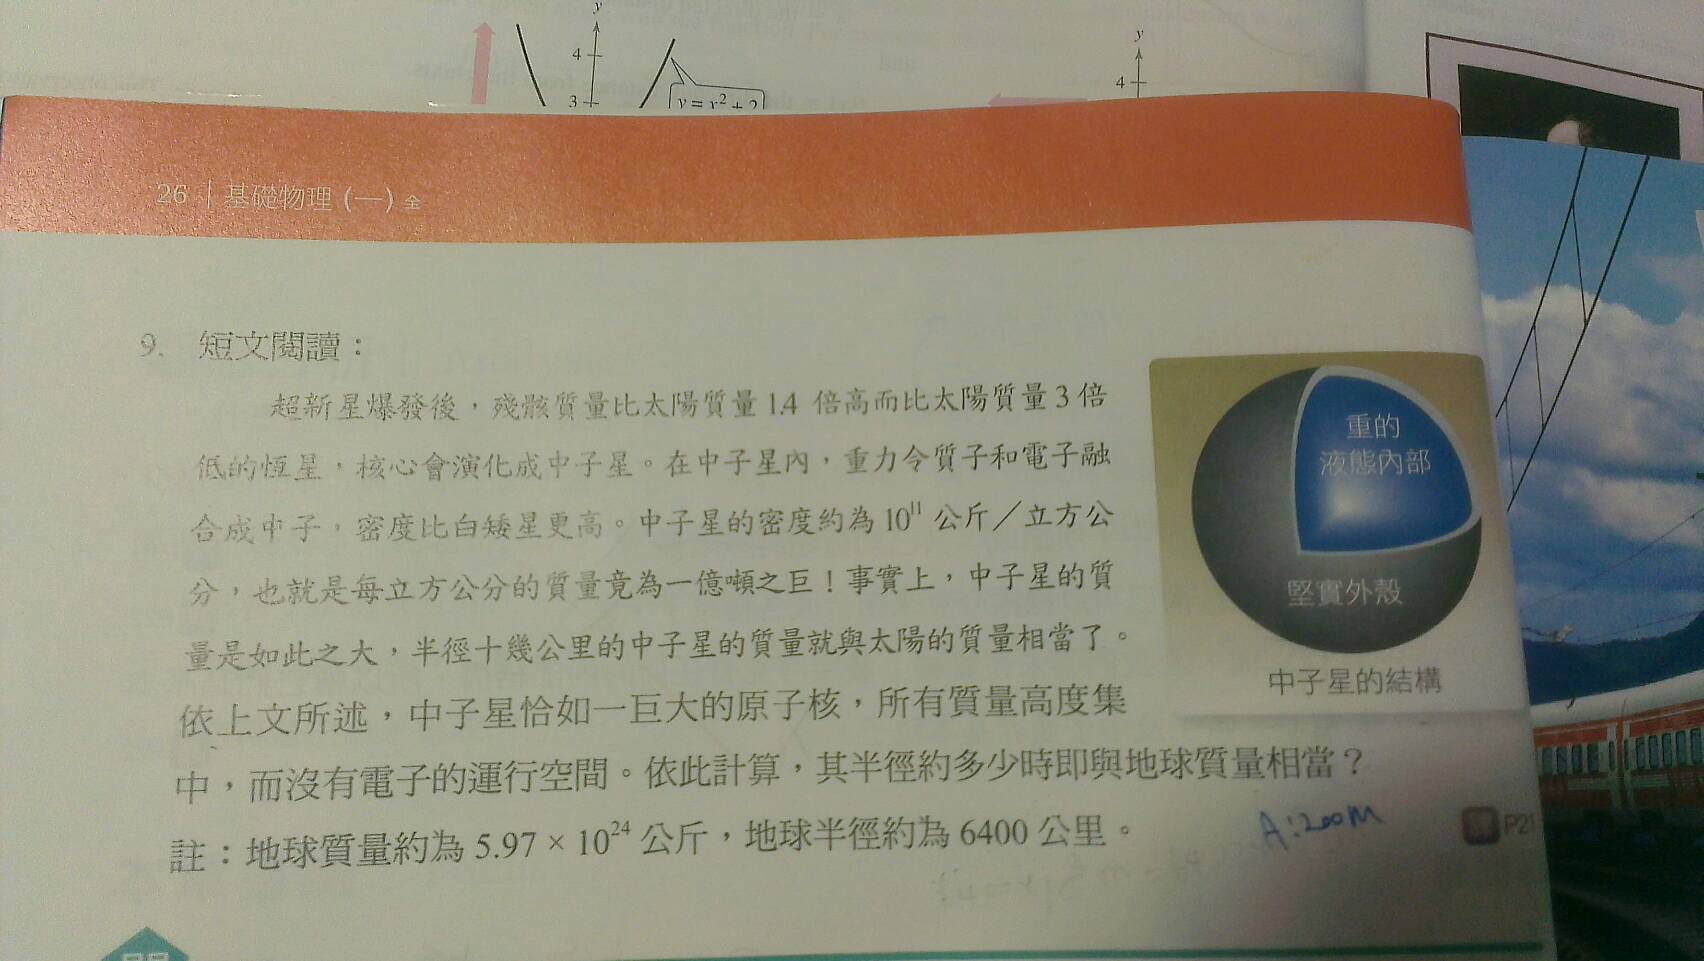 y
4
3
y = x² + 2
y
4
26 | 基礎物理 (一) 全
9. 短文閱讀：
超新星爆發後，殘骸質量比太陽質量 1.4 倍高而比太陽質量 3 倍
低的恆星，核心會演化成中子星。在中子星內，重力令質子和電子融
合成中子，密度比白矮星更高。中子星的密度約為 10¹¹ 公斤／立方公
分，也就是每立方公分的質量竟為一億噸之巨！事實上，中子星的質
量是如此之大，半徑十幾公里的中子星的質量就與太陽的質量相當了。
依上文所述，中子星恰如一巨大的原子核，所有質量高度集
中，而沒有電子的運行空間。依此計算，其半徑約多少時即與地球質量相當？
註：地球質量約為 5.97 × 10²⁴ 公斤，地球半徑約為 6400 公里。
重的
液態內部
堅實外殼
中子星的結構
A:200M
P21